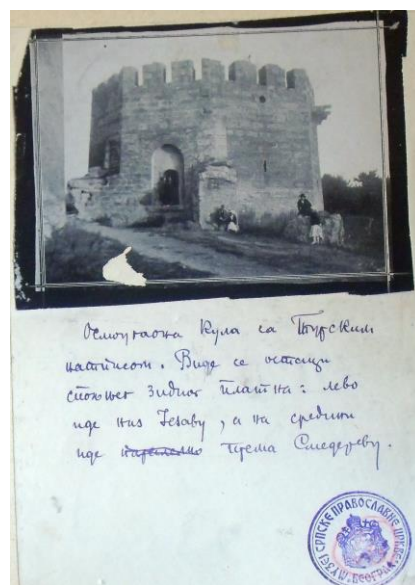 Осмоугаона Кула са Турским
натписом. Виде се остаци
спољнег зидног платна: лево
иде низ Језаву, а на средини
иде паралелно према Смедереву.
МУЗЕЈ СРПСКЕ ПРАВОСЛАВНЕ ЦРКВЕ
БЕОГРАД